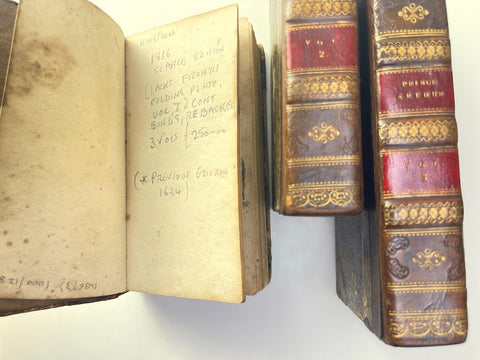 1816
SCARCE EDITION *
[LACKS FRONTIS
FOLDING PLATE,
VOL, I] CONT
BINDS, REBACKED
3 VOLS 250-00
(* PREVIOUS EDITION
1634)
VOL
2.
PRINCE
ARTHUR
VOL